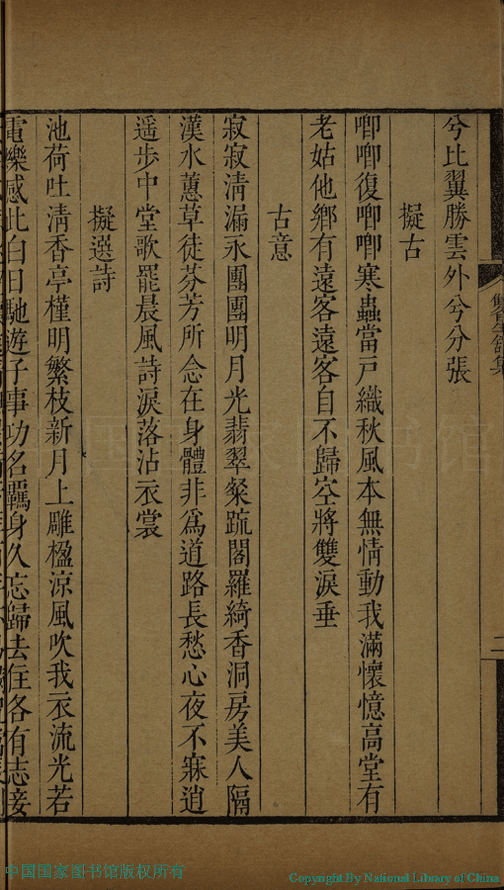 兮比翼勝雲外兮分張
擬古
唧唧復唧唧寒蟲當戶織秋風本無情動我滿懷憶高堂有
老姑他鄉有遠客遠客自不歸空將雙淚垂
古意
寂寂淸漏永團團明月光翡翠粲疏閣羅綺香洞房美人隔
漢水蕙草徒芬芳所念在身體非爲道路長愁心夜不寐逍
遥步中堂歌罷晨風詩淚落沾衣裳
擬選詩
池荷吐淸香亭槿明繁枝新月上雕楹涼風吹我衣流光若
電樂感此白日馳遊子事功名羈身久忘歸去住各有志接
二
中国国家图书馆版权所有
Copyright By National Library of China